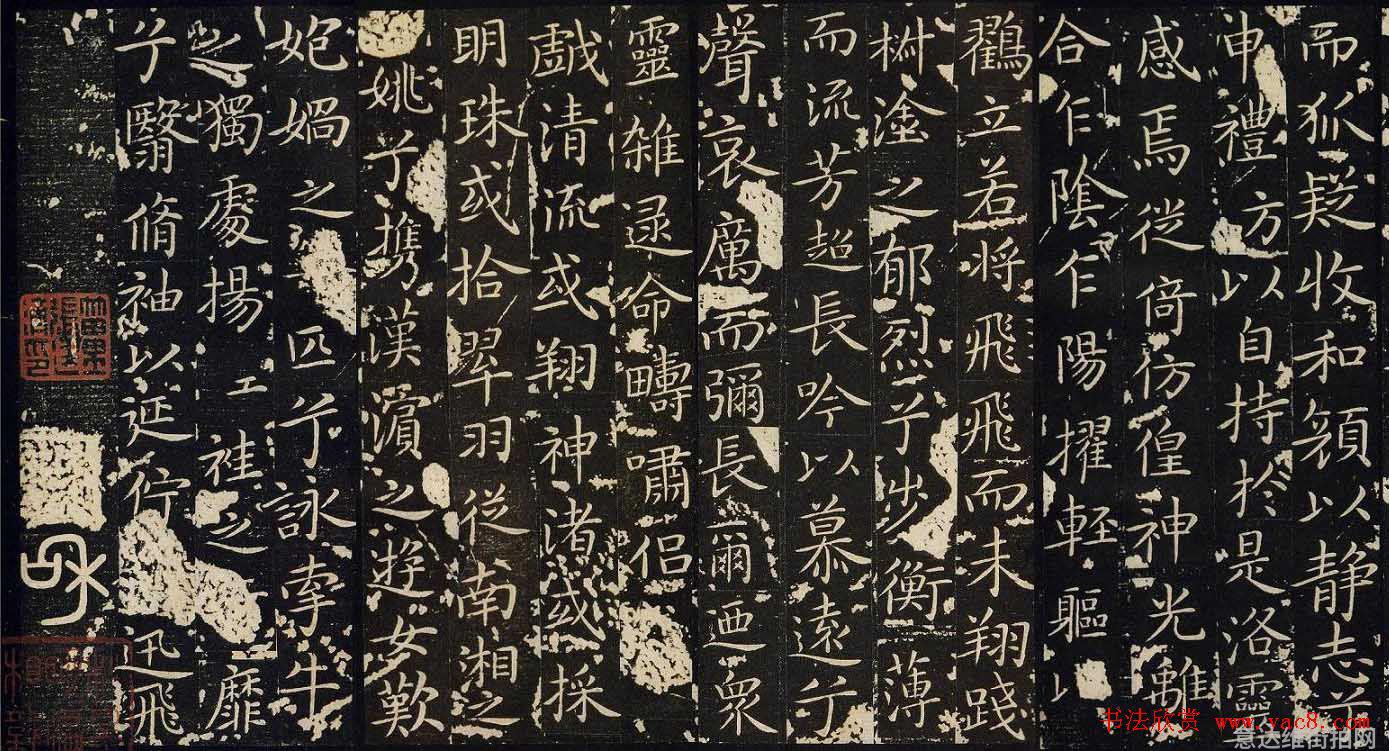 而狐疑收和顔以静志兮
申禮方以自持於是洛靈
感焉従倚仿偟神光離
合乍陰乍陽擢輕軀以
鸖立若將飛飛而未翔踐
椒塗之郁烈兮步衡薄
而流芳超長吟以慕遠兮
聲哀厲而彌長爾迺衆
靈雜遝命疇嘯侣
戲清流或翔神渚或採
明珠或拾翠羽従南湘之
姚兮攜漢濱之遊女歎
媧之匹兮詠牽牛
之獨處揚袿之靡
兮翳脩袖以延佇迅飛
书法欣赏 www.yac8.com
意达维街拍网